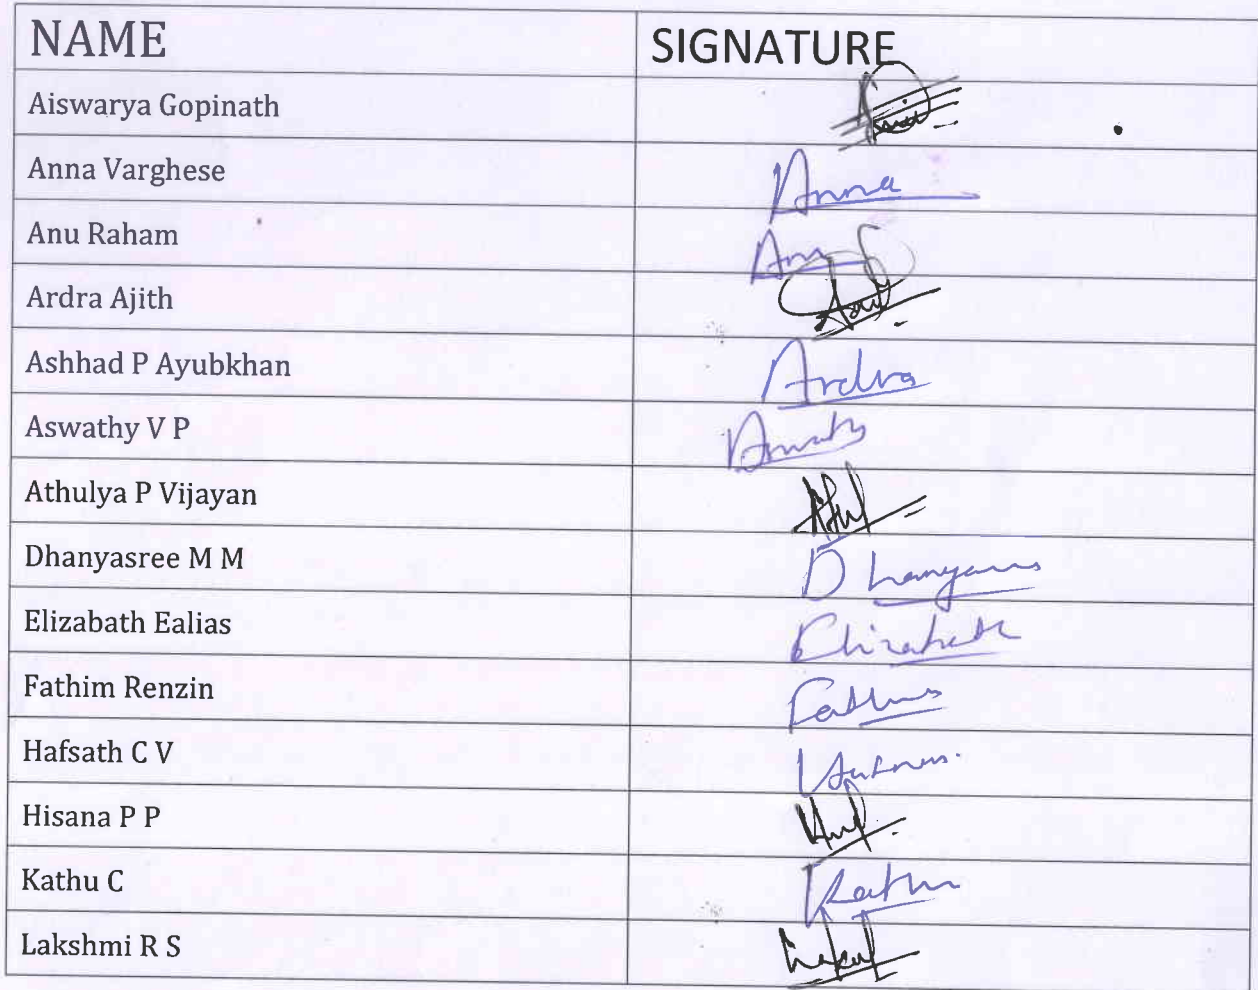 NAME SIGNATURE
Aiswarya Gopinath
Anna Varghese Anna
Anu Raham Anu
Ardra Ajith
Ashhad P Ayubkhan Ardra
Aswathy V P
Athulya P Vijayan
Dhanyasree M M
Elizabath Ealias Elizabeth
Fathim Renzin
Hafsath C V
Hisana P P
Kathu C Kathu
Lakshmi R S